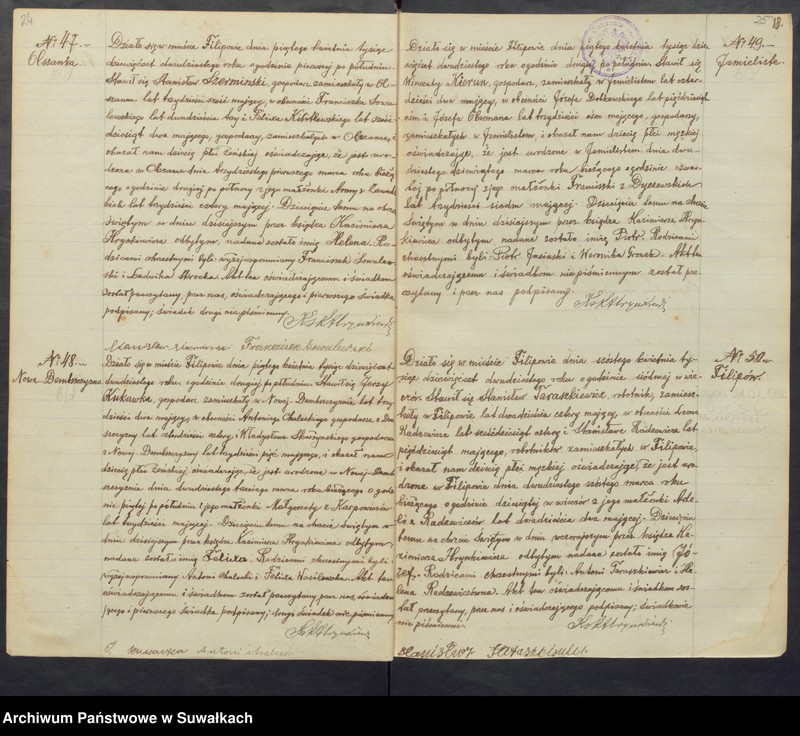 24
№ 47.-
Olszanka
Działo się w mieście Filipowie dnia piątego kwietnia tysiąc
dziewięćset dwudziestego roku o godzinie pierwszej po południu.
Stawił się Stanisław Szermiński, gospodarz zamieszkały w Ol-
szance lat trzydzieści sześć mający, w obecności Franciszka Sowa-
lewskiego lat dwadzieścia trzy i Feliksa lat sześć-
dziesiąt dwa mającego, gospodarzy, zamieszkałych w Olszance, i
okazał nam dziecię płci żeńskiej oświadczając, że jest uro-
dzone w Olszance dnia trzydziestego pierwszego marca roku bieżą-
cego o godzinie drugiej po północy z jego małżonki Anny z
lat trzydzieści cztery mającej. Dziecięciu temu na chrzcie
świętym w dniu dzisiejszym przez księdza Kazimierza
Hrynkiewicza odbytym, nadane zostało imię Helena. Ro-
dzicami chrzestnymi byli: wyżej wspomniany Franciszek Sowalew-
ski i Ludwika Akt ten oświadczającemu i świadkom
został przeczytany, przez nas, oświadczającego i pierwszego świadka
podpisany; świadek drugi niepiśmienny.
Ks K Hrynkiewicz
Franciszek Sowalewski
№ 48.-
Nowa Dembszczyzna
Działo się w mieście Filipowie dnia piątego kwietnia tysiąc dziewięćset
dwudziestego roku, o godzinie drugiej po południu. Stawił się Jerzy
Kukawka, gospodarz zamieszkały w Nowej-Dembszczyznie lat trzy-
dzieści dwa mający, w obecności Antoniego Chaleckiego gospodarza z Dem-
szczyzny lat cztery i Władysława Skarżyńskiego gospodarza
z Nowej-Dembszczyzny lat trzydzieści pięć mającego, i okazał nam
dziecię płci żeńskiej oświadczając, że jest urodzone w Nowej-Demb-
szczyznie dnia dwudziestego trzeciego marca roku bieżącego o godzi-
nie piątej po południu z jego małżonki Małgorzaty z Karpowiczów
lat trzydzieści mającej. Dziecięciu temu na chrzcie świętym w
dniu dzisiejszym przez księdza Kazimierza Hrynkiewicza odbytym
nadane zostało imię Feliksa. Rodzicami chrzestnymi byli:
wyżej wspomniany Antoni Chalecki i Feliksa Wasilewska. Akt ten
oświadczającemu i świadkom został przeczytany, przez nas, oświadcza-
jącego i pierwszego świadka podpisany; drugi świadek nie piśmienny
Ks K Hrynkiewicz
J. Kukawka Antoni Chalecki
25
13.
№ 49.-
Jemieliste
Działo się w mieście Filipowie dnia piątego kwietnia tysiąc dzie-
więćset dwudziestego roku o godzinie drugiej po południu. Stawił się
Wincenty Kierun, gospodarz, zamieszkały w Jemielistem lat czter-
dzieści dwa mający, w obecności Józefa lat pięćdziesiąt
osiem i Józefa Obermana lat trzydzieści osiem mającego, gospodarzy,
zamieszkałych w Jemielistem, i okazał nam dziecię płci męskiej
oświadczając, że jest urodzone w Jemielistem dnia dwu-
dziestego dziewiątego marca roku bieżącego o godzinie czwar-
tej po północy z jego małżonki Franciszki z
lat trzydzieści siedem mającej. Dziecięciu temu na chrzcie
świętym w dniu dzisiejszym przez księdza Kazimierza Hryn-
kiewicza odbytym nadane zostało imię Piotr. Rodzicami
chrzestnymi byli: Piotr Jasiński i Weronika Akt ten
oświadczającemu i świadkom niepiśmiennym został prze-
czytany i przez nas podpisany.
Ks K Hrynkiewicz
№ 50.-
Filipów.
Działo się w mieście Filipowie dnia szóstego kwietnia ty-
siąc dziewięćset dwudziestego roku o godzinie siódmej w wie-
czór. Stawił się Stanisław Taraszkiewicz, robotnik, zamiesz-
kały w Filipowie lat dwadzieścia cztery mający, w obecności
Radzewicza lat sześćdziesiąt cztery i Stanisława Radzewicza lat
pięćdziesiąt mającego, robotników zamieszkałych w Filipowie
i okazał nam dziecię płci męskiej oświadczając, że jest uro-
dzone w Filipowie dnia dwudziestego szóstego marca roku
bieżącego o godzinie dziesiątej w wieczór z jego małżonki Ade-
li z Radzewiczów lat dwadzieścia dwa mającej. Dziecięciu
temu na chrzcie świętym w dniu wczorajszym przez księdza Ka-
zimierza Hrynkiewicza odbytym nadane zostało imię Jó-
zef. Rodzicami chrzestnymi byli: Antoni Taraszkiewicz i He-
lena Radzewiczówna. Akt ten oświadczającemu i świadkom zos-
tał przeczytany, przez nas i oświadczającego podpisany; świadkowie
nie piśmienni.
Ks K Hrynkiewicz
Stanisław Taraszkiewicz
Archiwum Państwowe w Suwałkach